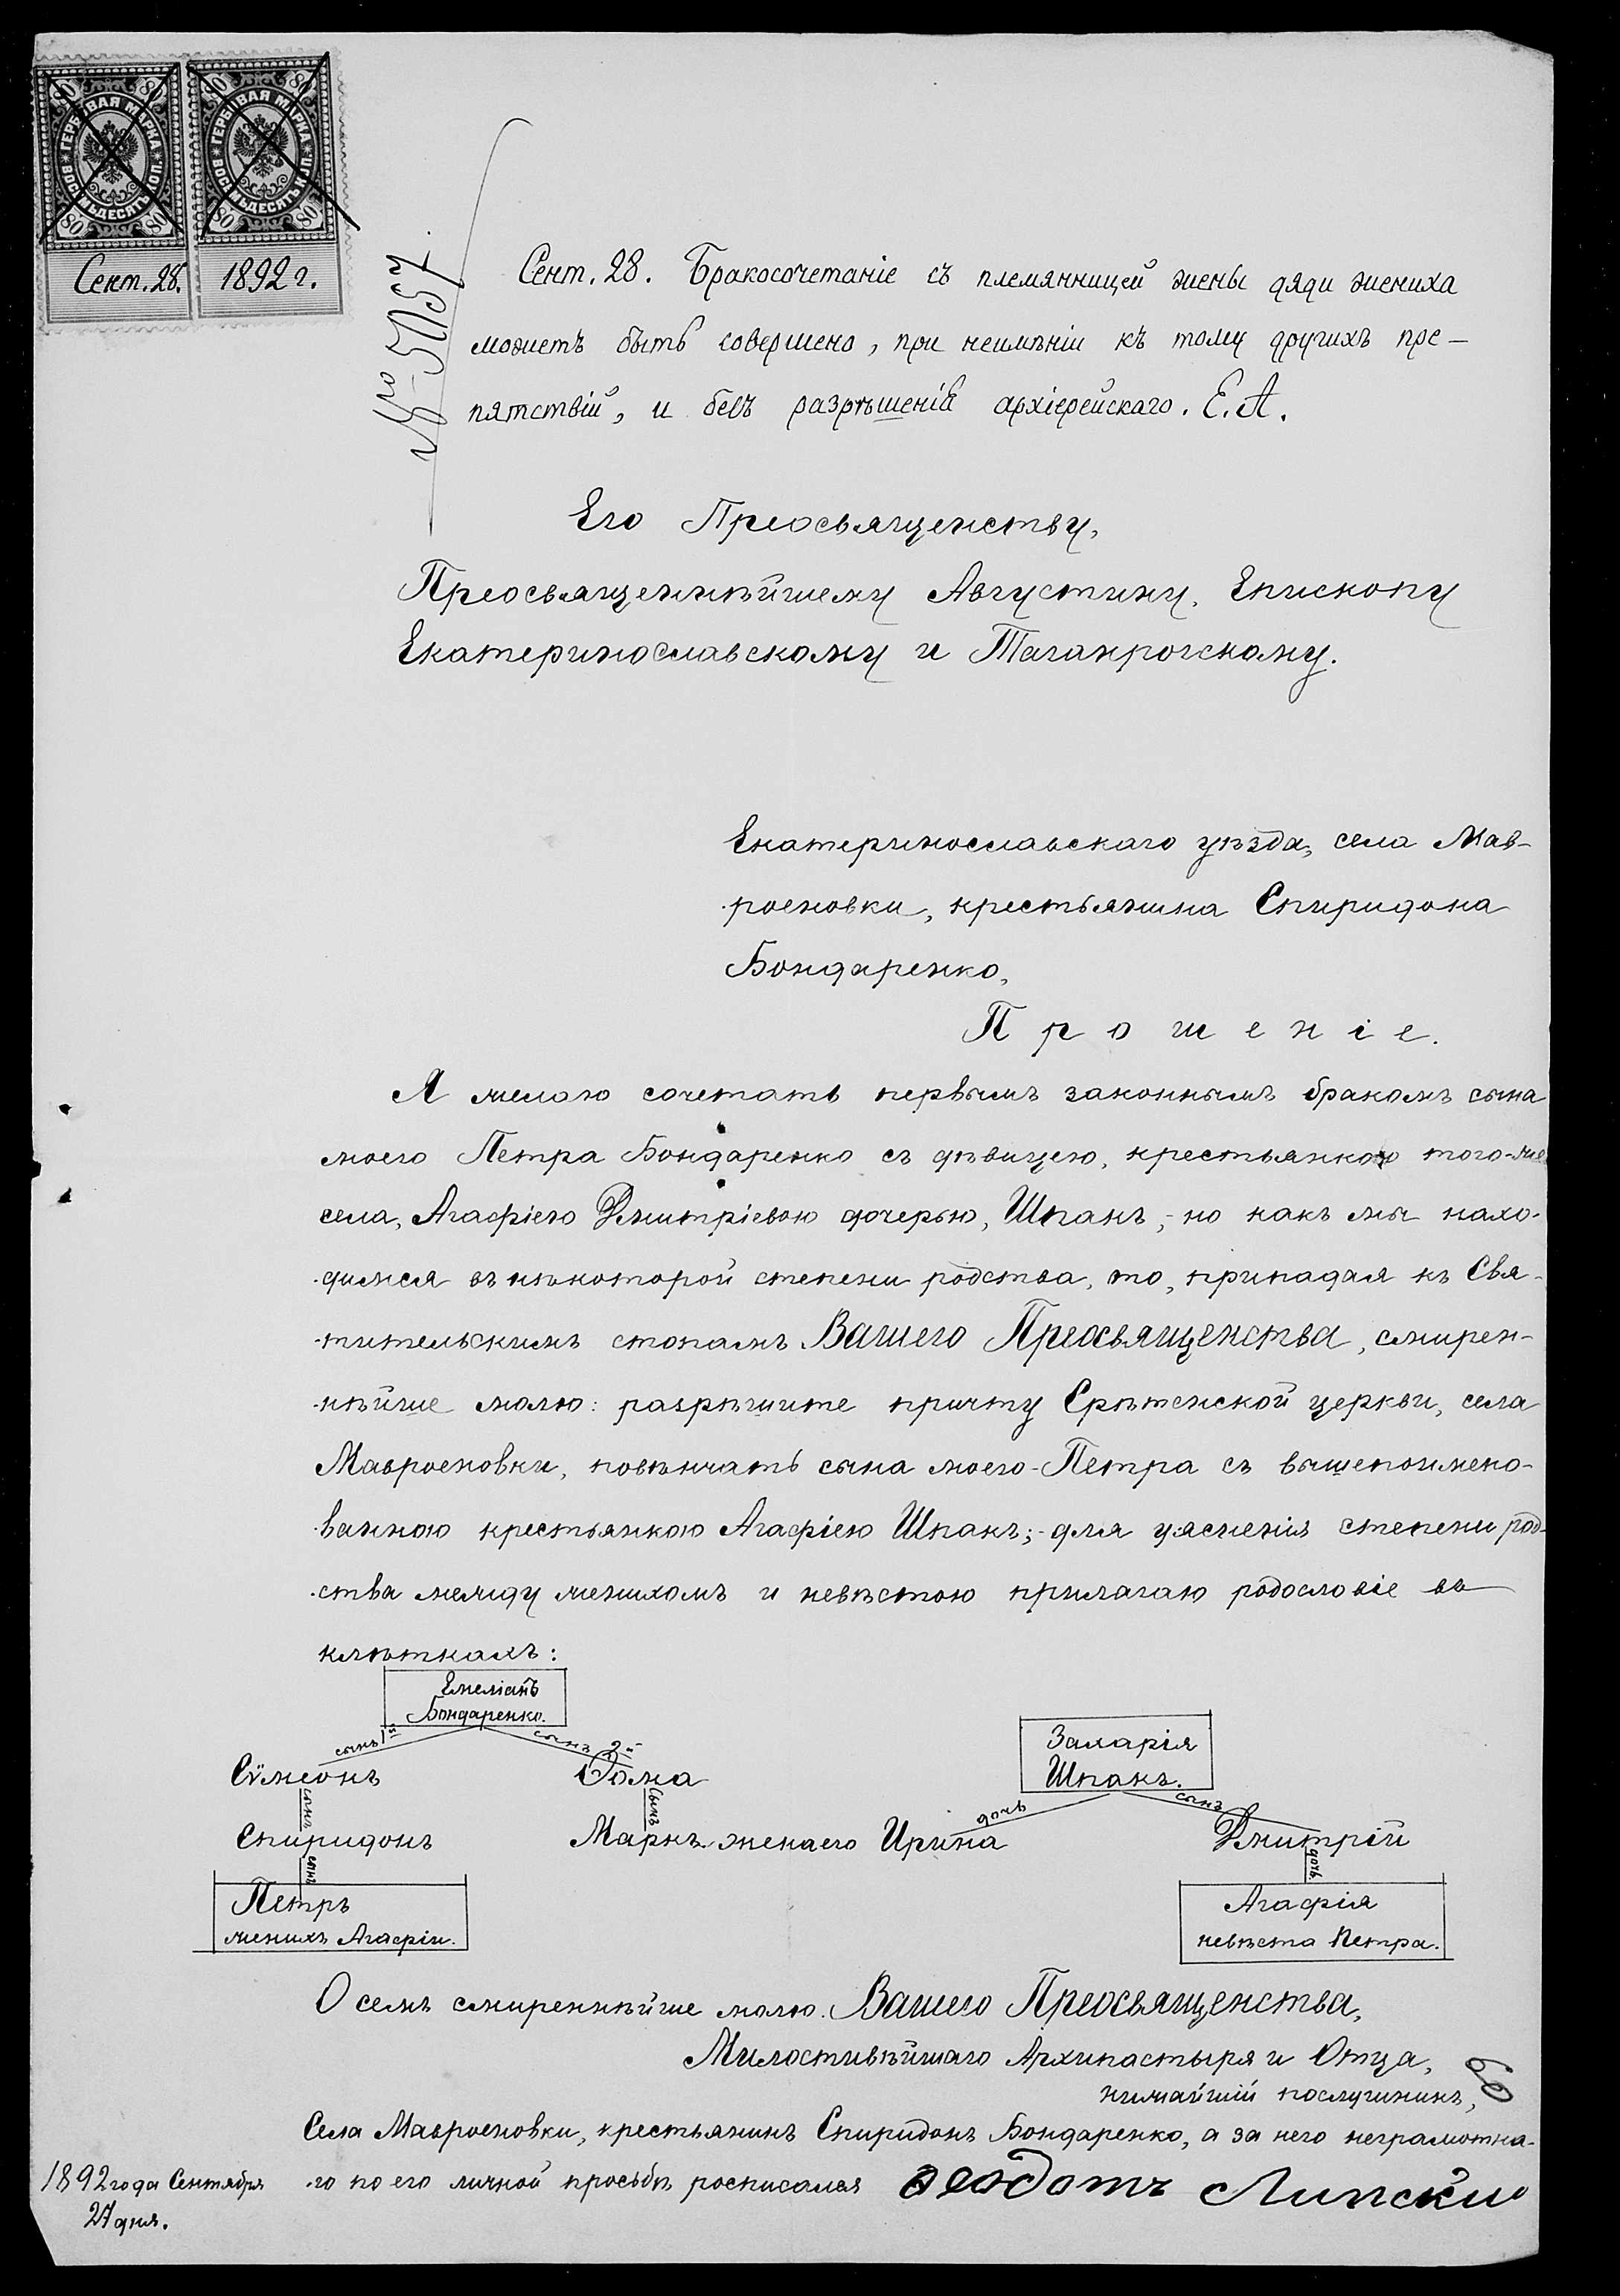 80 80
ГЕРБОВАЯ МАРКА
ВОСЕМЬДЕСЯТЬ КОП.
80 80
80 80
ГЕРБОВАЯ МАРКА
ВОСЕМЬДЕСЯТЬ КОП.
80 80
Сент. 28. 1892 г.
Сент. 28. Бракосочетаніе съ племянницей жены дяди жениха
можетъ быть совершено, при неимѣніи къ тому другихъ пре-
пятствій, и безъ разрѣшенія архіерейскаго. Е. А.
Его Преосвященству,
Преосвященнѣйшему Августину, Епископу
Екатеринославскому и Таганрогскому.
Екатеринославскаго уѣзда, села Мав-
роеновки, крестьянина Спиридона
Бондаренко,
Прошеніе.
Я желаю сочетать первымъ законнымъ бракомъ сына
моего Петра Бондаренко съ дѣвицею, крестьянкою того-же
села, Агафіею Дмитріевою дочерью, Шпакъ,- но какъ мы нахо-
-димся въ нѣкоторой степени родства, то, припадая къ Свя-
-тительскимъ стопамъ Вашего Преосвященства, смирен-
-нѣйше молю: разрѣшите причту Срѣтенской церкви, села
Мавроеновки, повѣнчать сына моего Петра съ вышепоимено-
-ванною крестьянкою Агафіею Шпакъ;- для уясненія степени род-
-ства между женихомъ и невѣстою прилагаю родословіе въ
клѣткахъ:
Емеліанъ
Бондаренко.
сынъ 1й сынъ 2й
Захарія
Шпакъ.
Сѵмеонъ Ѳома
дочь сынъ
сынъ сынъ
Спиридонъ Маркъ жена его Ирина Дмитрій
сынъ дочь
Петръ
женихъ Агафіи.
Агафія
невѣста Петра.
О семъ смиреннѣйше молю. Вашего Преосвященства,
Милостивѣйшаго Архипастыря и Отца,
нижайшій послушникъ,
Села Мавроеновки, крестьянинъ Спиридонъ Бондаренко, а за него неграмотна-
-го по его личной просьбѣ росписался Ѳеодотъ Липскій
1892 года Сентября
27 дня.